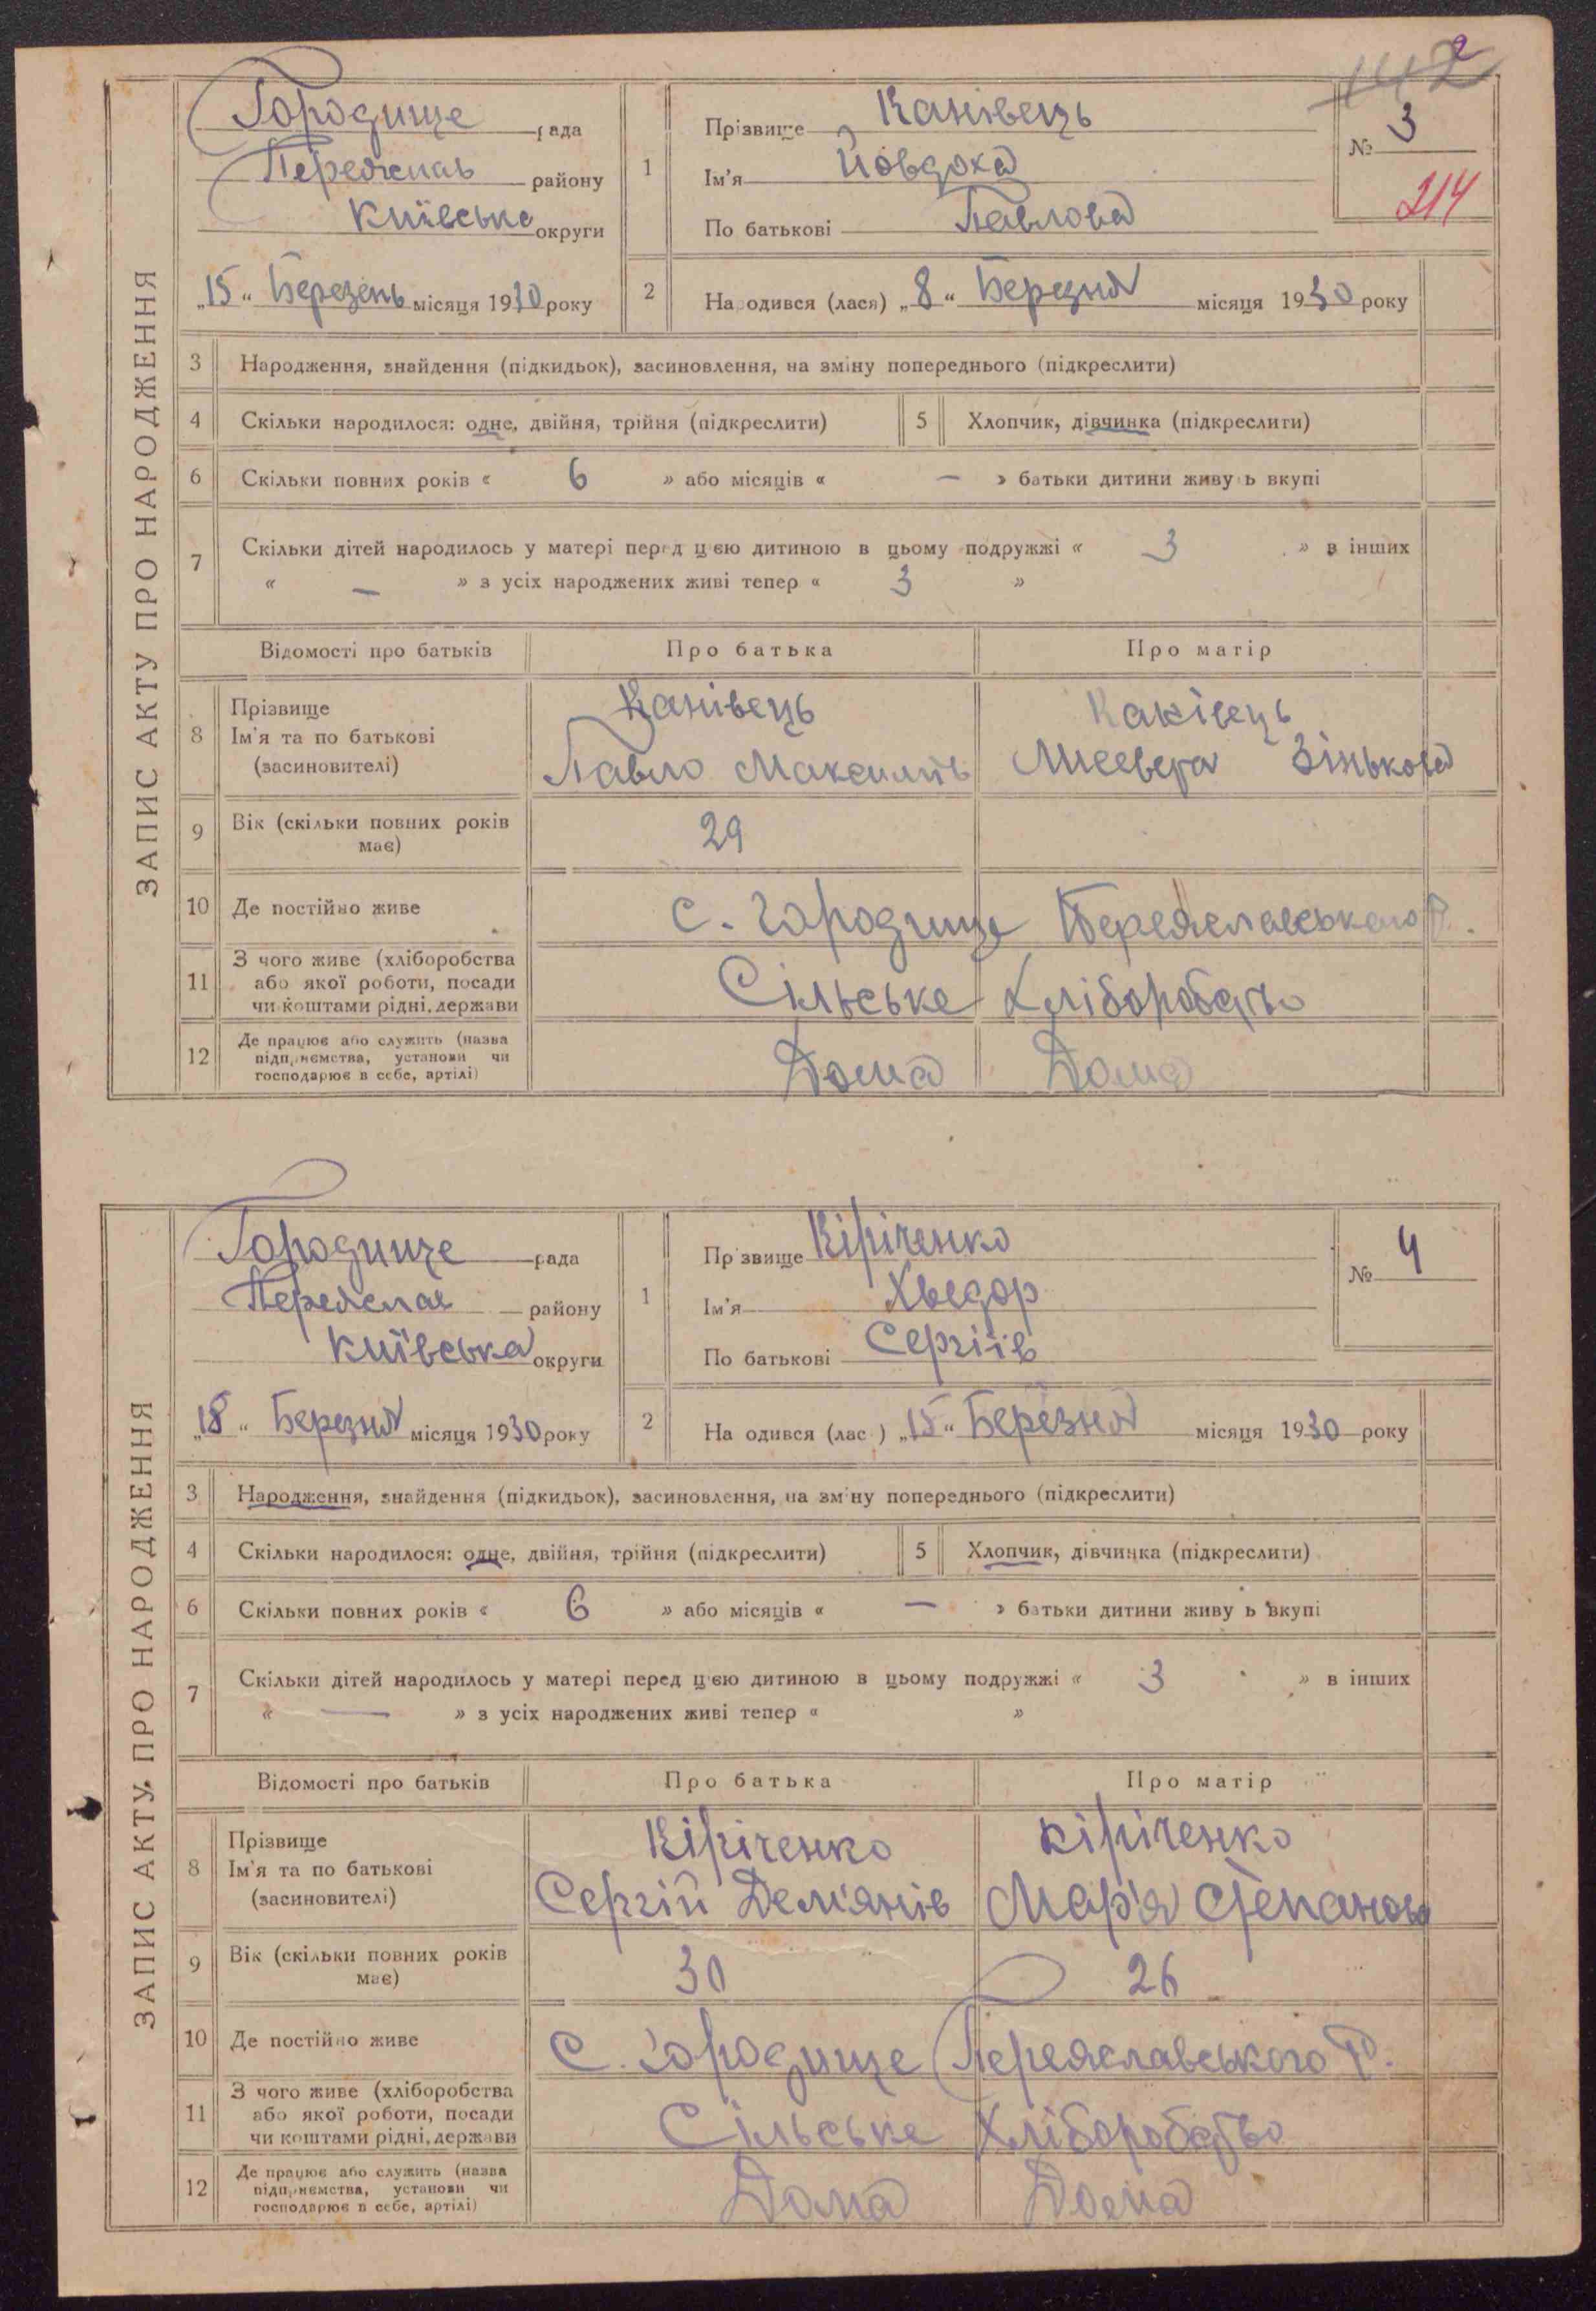 2
ЗАПИС АКТУ ПРО НАРОДЖЕННЯ
Городище рада
району
Київське округи
„15“ Березень місяця 1930 року
1
Прізвище Канівець
Ім'я Йовдоха
По батькові Павлова
№ 3
214
2
Народився (лася) „8“ Березня місяця 1930 року
3 Народження, знайдення (підкидьок), засиновлення, на зміну попереднього (підкреслити)
4 Скільки народилося: одне, двійня, трійня (підкреслити) 5 Хлопчик, дівчинка (підкреслити)
6 Скільки повних років « 6 » або місяців « — » батьки дитини живу ь вкупі
7 Скільки дітей народилось у матері перед цією дитиною в цьому подружжі « 3 » в інших
« — » з усіх народжених живі тепер « 3 »
Відомості про батьків Про батька Про матір
8 Прізвище
Ім'я та по батькові
(засиновителі)
Канівець
Павло
Канівець
Зінькова
9 Вік (скільки повних років
має)
29
10 Де постійно живе с. Городище Переяславського Р.
11 З чого живе (хліборобства
або якої роботи, посади
чи коштами рідні, держави
Сільське Хліборобство
12 Де працює або служить (назва
підприємства, установи чи
господарює в себе, артілі)
Дома Дома
ЗАПИС АКТУ ПРО НАРОДЖЕННЯ
Городище рада
Переяслав району
Київська округи
„18“ Березня місяця 1930 року
1
Пр звище Кіріченко
Ім'я Хведор
По батькові Сергіїв
№ 4
2
На одився (лас ) „15“ Березня місяця 1930 року
3 Народження, знайдення (підкидьок), засиновлення, на зм ну попереднього (підкреслити)
4 Скільки народилося: одне, двійня, трійня (підкреслити) 5 Хлопчик, дівчинка (підкреслити)
6 Скільки повних років « 6 » або місяців « — » батьки дитини живу ь вкупі
7 Скільки дітей народилось у матері перед цією дитиною в цьому подружжі « 3 » в інших
« — » з усіх народжених живі тепер « »
Відомості про батьків Про батька Про матір
8 Прізвище
Ім'я та по батькові
(засиновителі)
Кіріченко
Сергій Дем'янів
Кіріченко
Мар'я Степанова
9 Вік (скільки повних років
має)
30 26
10 Де постійно живе с. Городище Переяславського Р.
11 З чого живе (хліборобства
або якої роботи, посади
чи коштами рідні, держави
Сільське Хліборобство
12 Де працює або служить (назва
підприємства, установи чи
господарює в себе, артілі)
Дома Дома